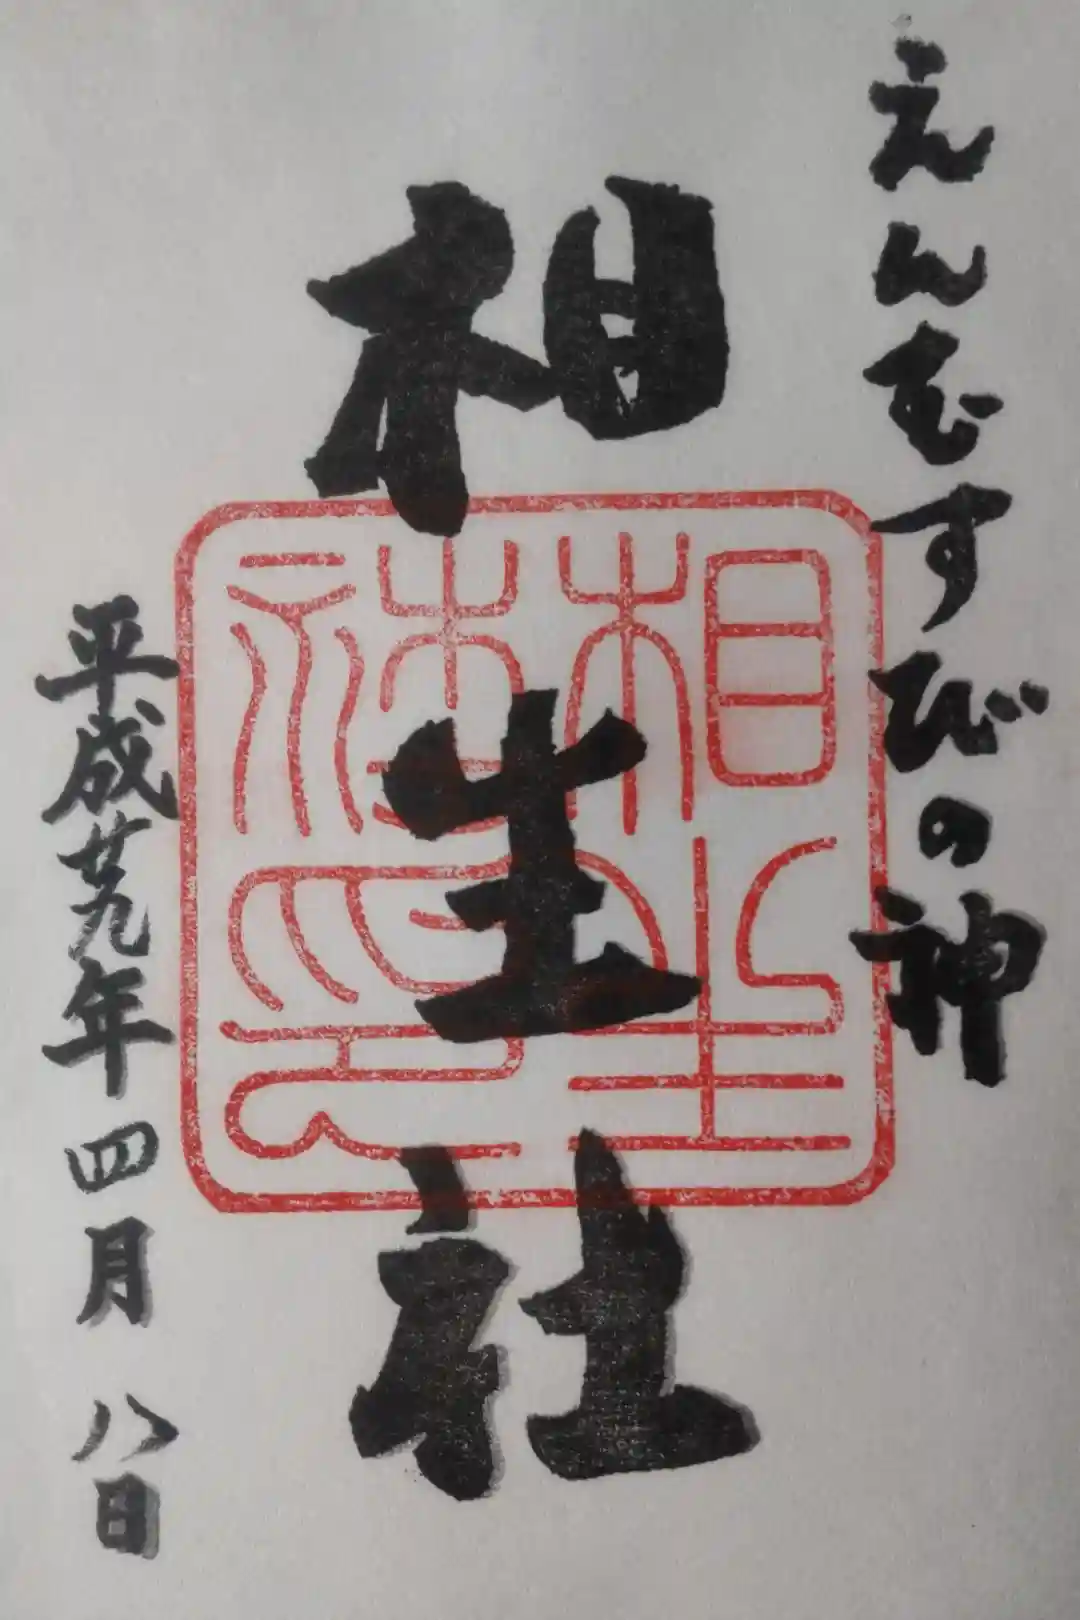 えんむすびの神
相生社
平成廿九年四月八日